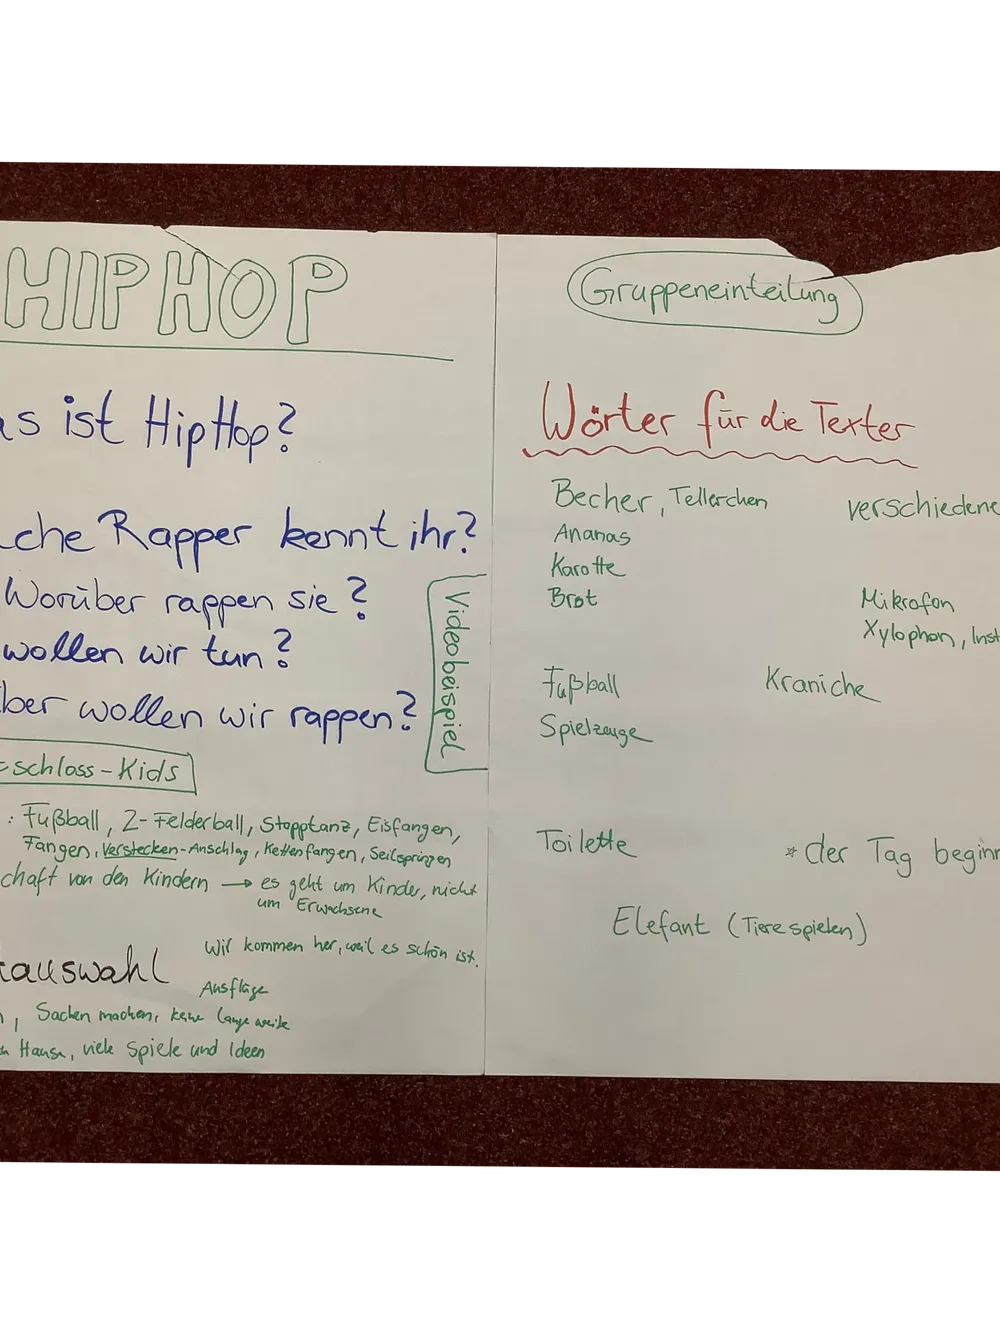 HIPHOP
as ist HipHop?
che Rapper kennt ihr?
Worüber rappen sie?
wollen wir tun?
ber wollen wir rappen?
Videobeispiel
schloss-Kids
: Fußball, 2-Felderball, Stopptanz, Eisfangen,
Fangen, Verstecken-Anschlag, Kettenfangen, Seilspringen
chaft von den Kindern → es geht um Kinder, nicht
um Erwachsene
Wir kommen her, weil es schön ist.
auswahl
Ausflüge
n, Sachen machen, keine Langeweile
Hause, viele Spiele und Ideen
Gruppeneinteilung
Wörter für die Texter
Becher, Tellerchen verschiedene
Ananas
Karotte
Brot Mikrofon
Xylophon, Inst
Fußball Kraniche
Spielzeuge
Toilette * der Tag beginn
Elefant (Tiere spielen)